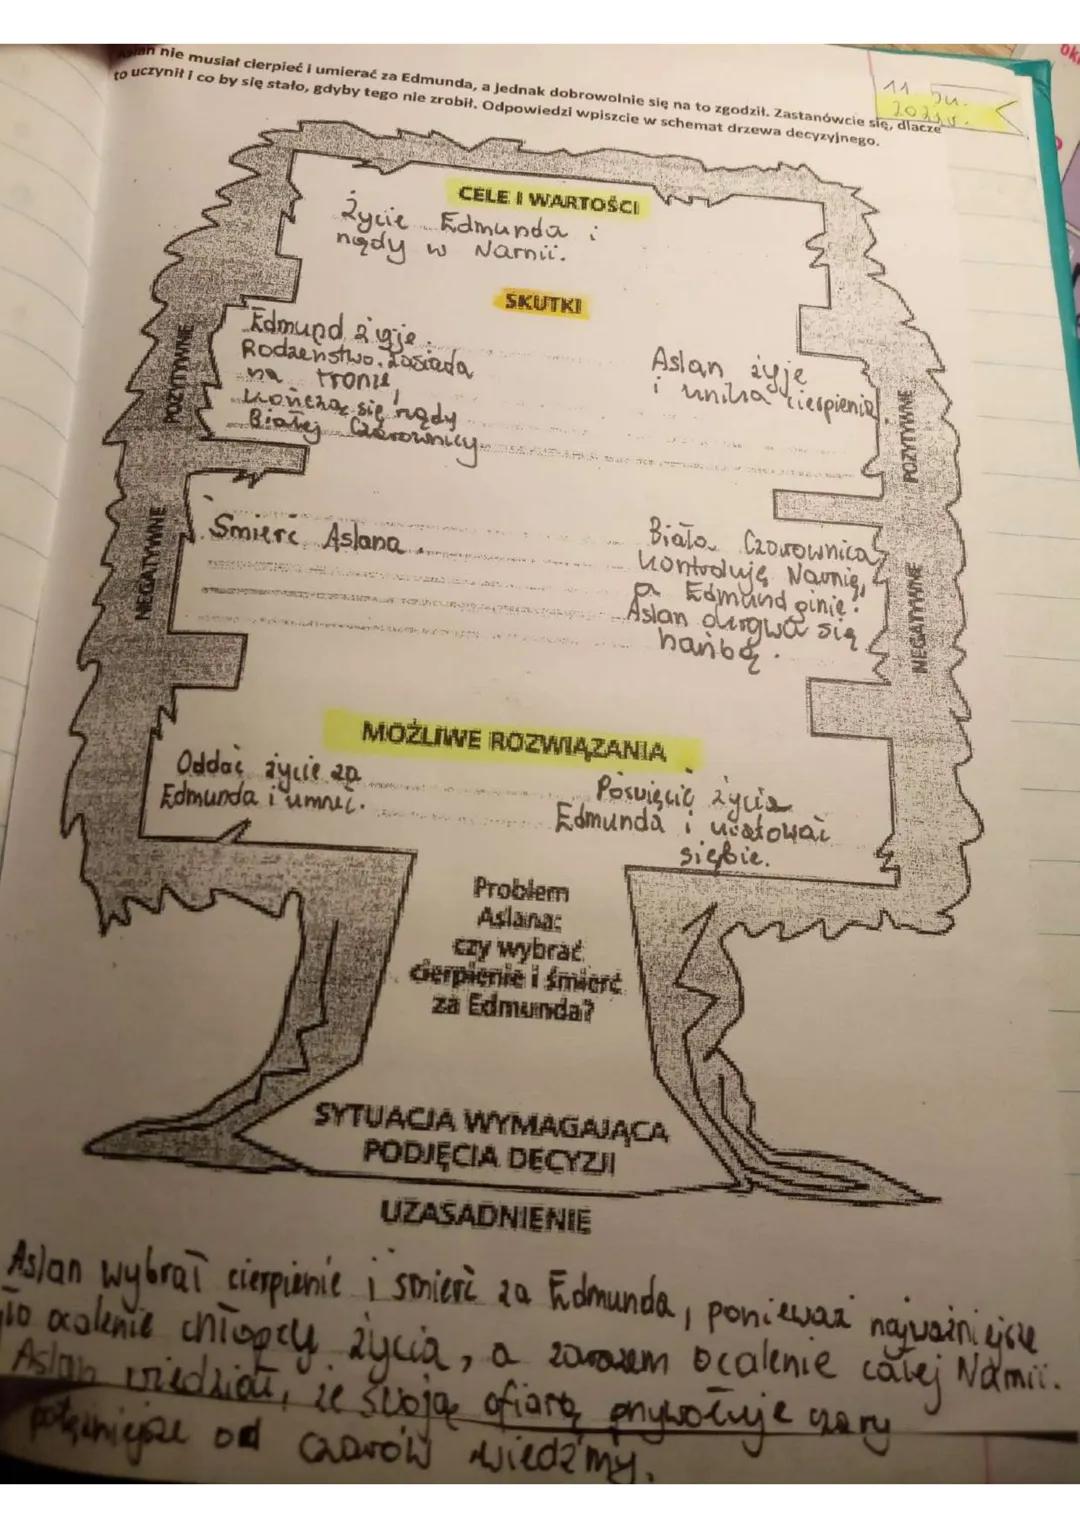 nie musiał cierpieć i umierać za Edmunda, a jednak dobrowolnie się na to zgodził. Zastanówcie się, dlacze
to uczynił i co by się stało, gdyby tego nie zrobił. Odpowiedzi wpiszcie w schemat drzewa decyzyjnego.
11
CELE I WARTOŚCI
Życie Edmunda i
rządy w Narnii.
SKUTKI
POZYTYWNE
Edmund żyje.
Rodzeństwo zasiada
na tronie,
kończą się rządy
Białej Czarownicy
Aslan żyje
i unika cierpienia
POZYTYWNE
NEGATYWNE
Śmierć Aslana.
Biała Czarownica
kontroluję Narnię,
a Edmund ginie.
Aslan okrywa się
hańbą.
NEGATYWNE
MOŻLIWE ROZWIĄZANIA
Oddać życie za
Edmunda i umrzeć.
Poświęcić życia
Edmunda i uratować
siebie.
Problem
Aslana:
czy wybrać
cierpienie i śmierć
za Edmunda?
SYTUACJA WYMAGAJĄCA
PODJĘCIA DECYZJI
UZASADNIENIE
Aslan wybrał cierpienie i śmierć za Edmunda, ponieważ najważniejsze
to ocalenie chłopcy życia, a zarazem ocalenie całej Narnii.
Aslan wiedział, że swoją ofiarą przywołuje czary
potężniejsze od czarów wiedźmy.